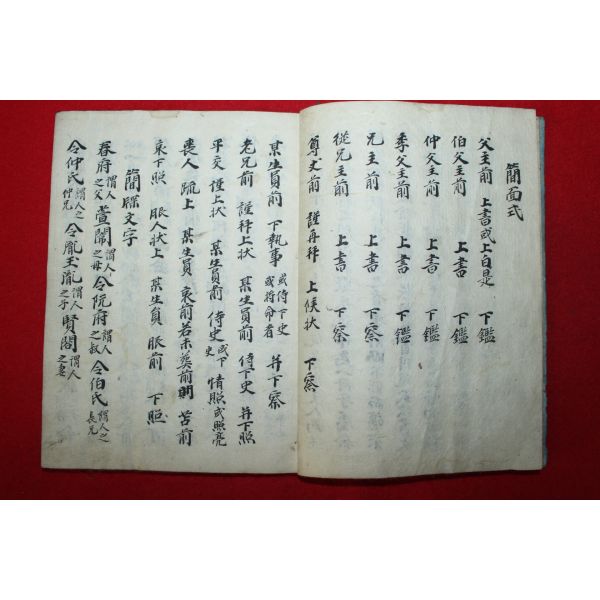 簡面式
父主前 上書或上白是 下鑑
伯父主前 上書 下鑑
仲父主前 上書 下鑑
季父主前 上書 下鑑
兄主前 上書 下察
從兄主前 上書 下察
尊丈前 謹再拜 上候狀 下察
某生員前 下執事 或侍下史 或將命者 并下察
老兄前 謹拜上狀 某生員前 侍下史 并下照
平交 謹上狀 某生員前 侍史 或下史 情照或照亮
喪人 疏上 某生員 哀前若未葬前則 苫前
哀下照 服人狀上 某生員 服前 下照
簡牒文字
春府謂人之父 萱闈謂人之母 令阮府謂人之叔 令伯氏謂人之長兄
令仲氏謂人之仲兄 令胤玉胤謂人之子 賢閤謂人之妻